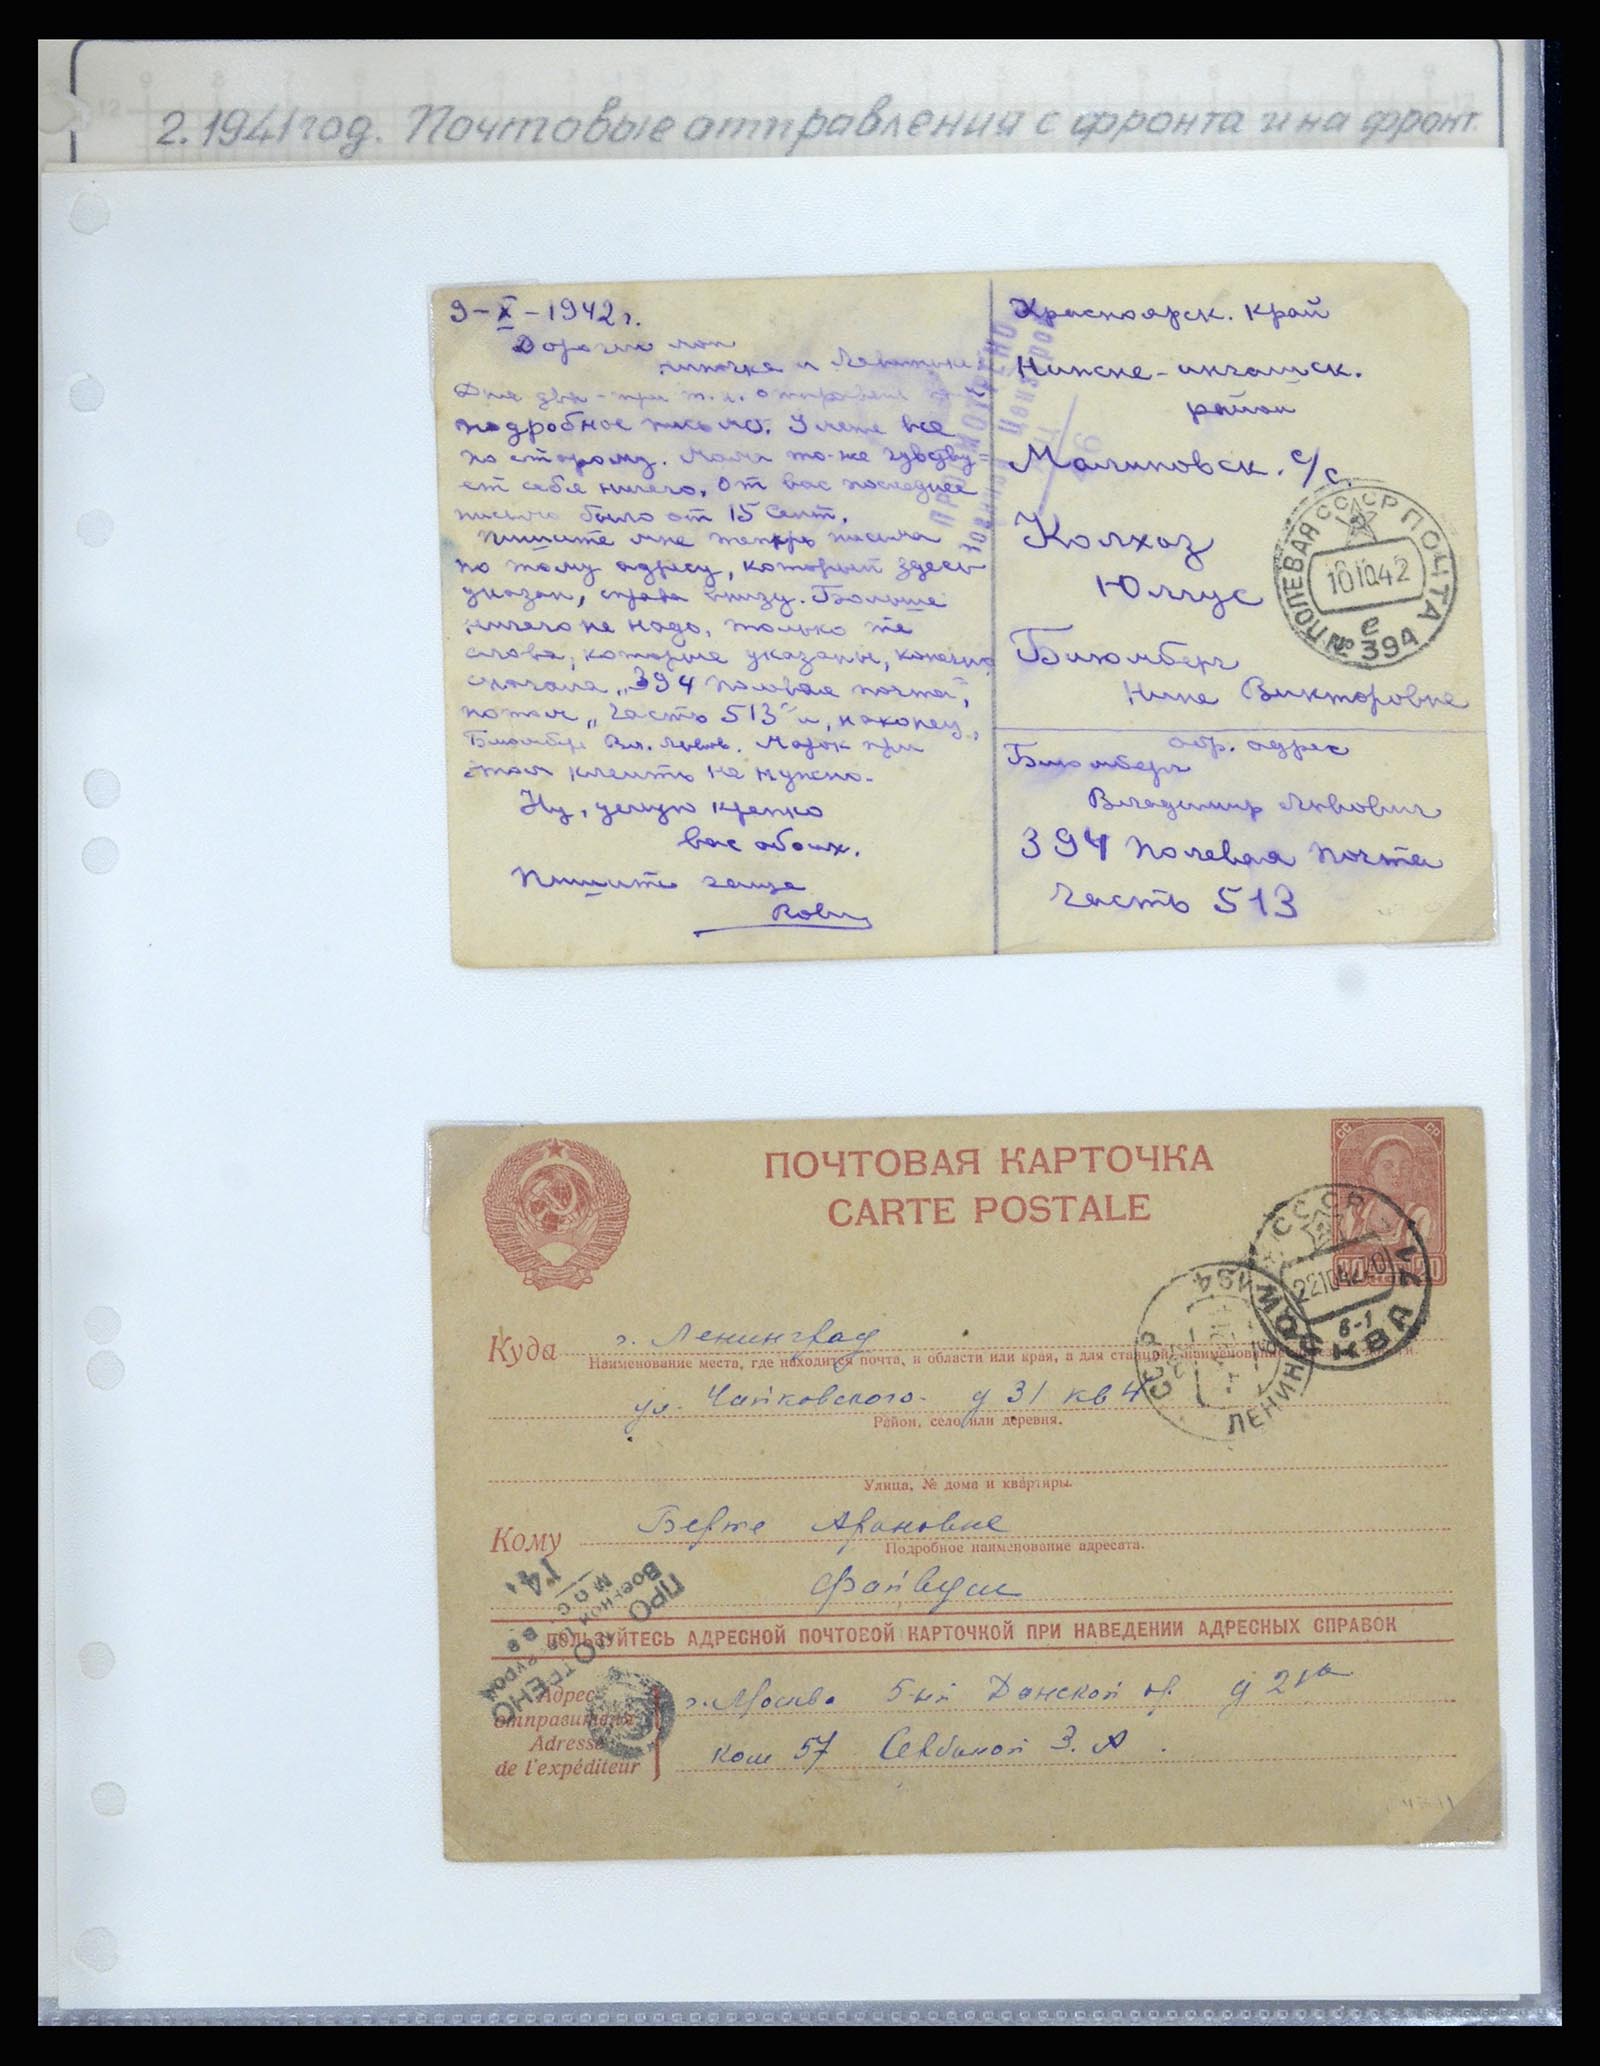 2. 1941 год. Почтовые отправления с фронта и на фронт.
9-X-1942 г.
Дорогие
подробное письмо. У меня все
по старому. Мама то-же чувству-
ет себя ничего. От вас последнее
письмо было от 15 Сент.
Пишите мне теперь письма
по тому адресу, который здесь
указан, справа внизу. Больше
ничего не надо, только те
слова, которые указаны, конечно
сначала „394 полевая почта",
потом „Часть 513" и, наконец,
Блюмберг Вл. Львов. Марок при
этом клеить не нужно.
Ну, целую крепко
вас обоих.
Пишите чаще
ПРОСМОТРЕНО
Военной Цензурой
Красноярск. край
Нижне-ингашск.
район
Малиновск. с/с.
Колхоз
Юлчус
Блюмберг
Нине Викторовне
ПОЛЕВАЯ СССР ПОЧТА
101042
е
№ 394
обр. адрес
Блюмберг
Владимир Львович
394 полевая почта
Часть 513
ПОЧТОВАЯ КАРТОЧКА
CARTE POSTALE
СС СР
СССР
221042
МОСКВА
6-1
СССР
ЛЕНИН
Куда г. Ленинград
Наименование места, где находится почта, и области или края, а для станций, наименование
ул. Чайковского д 31 кв 4
Район, село или деревня.
Улица, № дома и квартиры.
Кому Берте Ароновне
Подробное наименование адресата.
Файвуш
ПРОСМОТРЕНО
Военной Цензурой
ПОЛЬЗУЙТЕСЬ АДРЕСНОЙ ПОЧТОВОЙ КАРТОЧКОЙ ПРИ НАВЕДЕНИИ АДРЕСНЫХ СПРАВОК
Адрес
отправителя
Adresse
de l'expéditeur
г. Москва 5-ый Донской пр. д 21а
ком 57 Севбиной З. А.